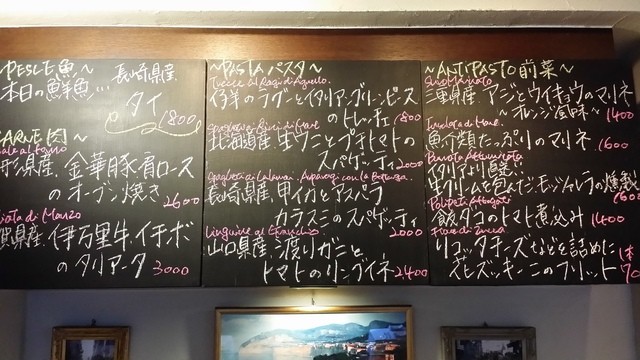 PESCE 魚～
本日の鮮魚… 長崎県産
タイ
1800
CARNE 肉～
金華豚・肩ロース
のオーブン焼き
2600
伊万里牛・イチボ
のタリアータ
3000
～PASTA パスタ～
仔羊のラグーとイタリアングリーンピース
のトレッチェ 1800
北海道産、生ウニとプチトマトの
スパゲッティ 2000
長崎県産、甲イカとアスパラ
カラスミのスパゲッティ
2000
Linguine al Granchio
山口県産、渡りガニと
トマトのリングイネ 2,400
～ANTIPASTO 前菜～
三重県産 アジとウイキョウのマリネ
～オレンジ風味～ 1400
魚介類たっぷりのマリネ 1600
Burrata Affumicata
イタリアより直送!!
生クリームを包んだモッツァレラの燻製
1600
Polipetti Affogati
飯ダコのトマト煮込み 1400
Fiore di Zucca
リコッタチーズなどを詰めた 1本
花ズッキーニのフリット